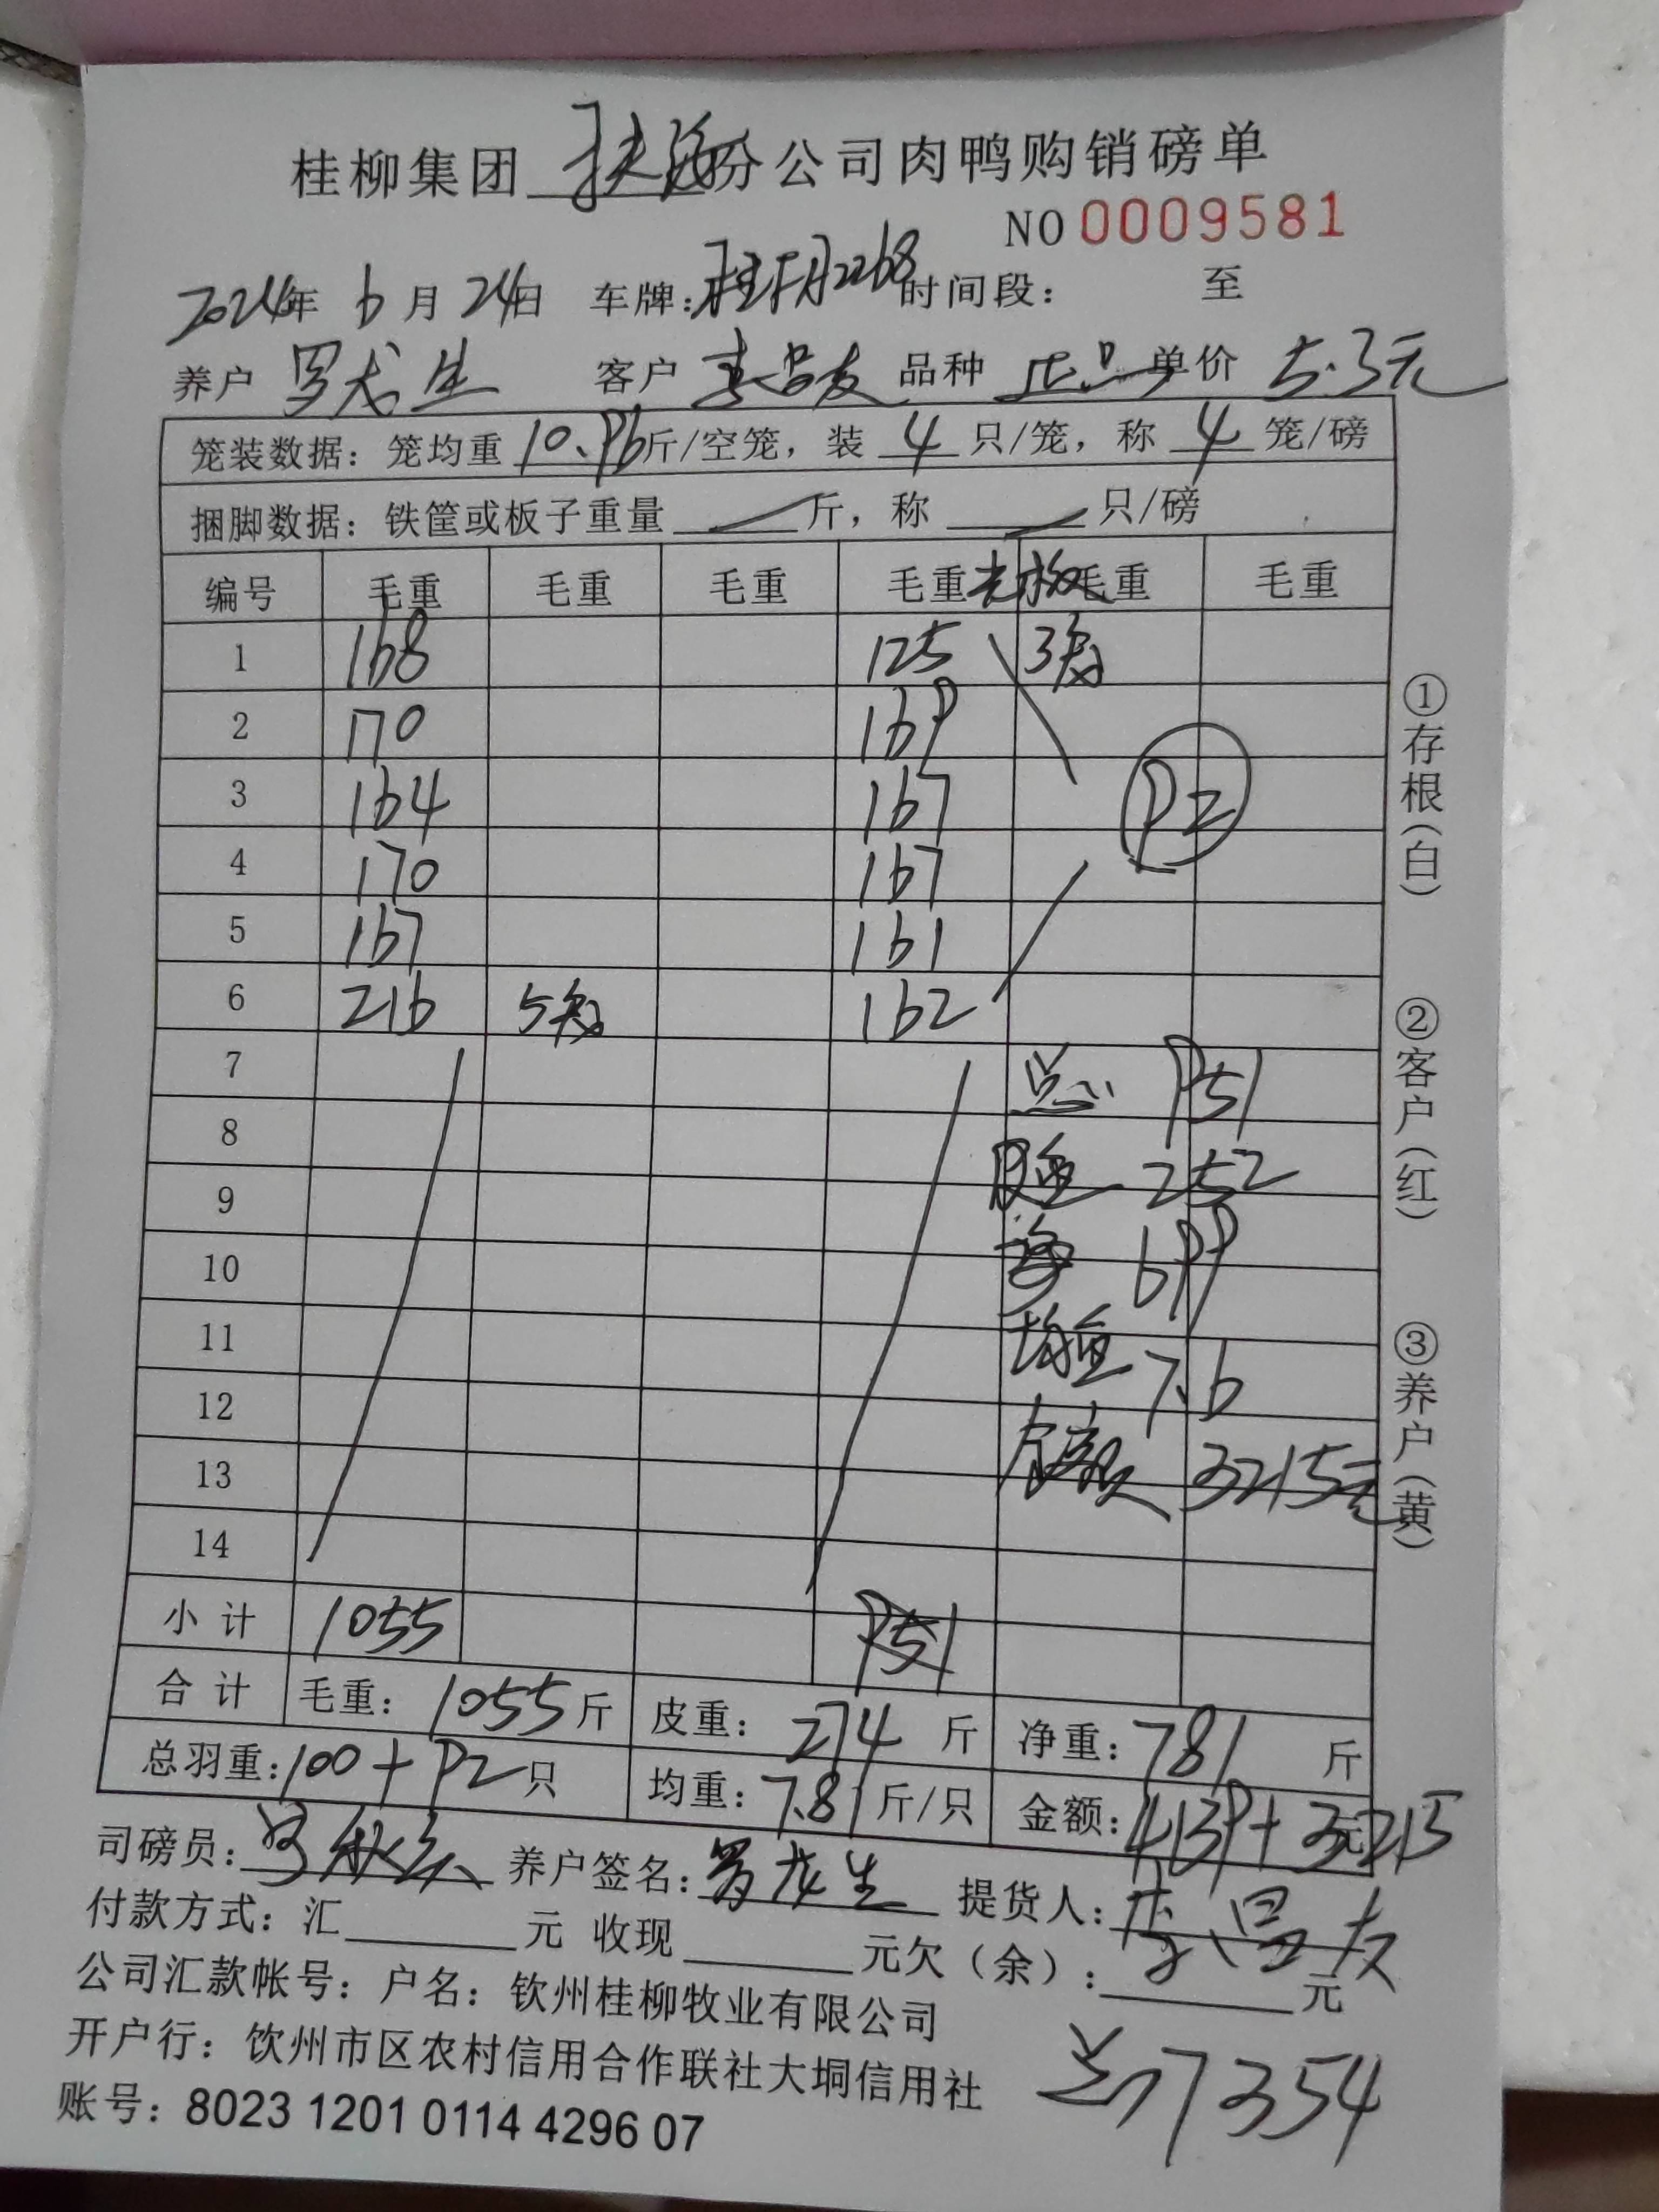 桂柳集团 扶海分公司肉鸭购销磅单
NO 0009581
2024年 6月 24日 车牌: 2268 时间段: 至
养户 罗龙生 客户 李昌友 品种 正品 单价 5.3元
笼装数据: 笼均重 10.96斤/空笼, 装 4 只/笼, 称 4 笼/磅
捆脚数据: 铁筐或板子重量 斤, 称 只/磅
编号 毛重 毛重 毛重 毛重 毛重 毛重
1 168 125 3笼
2 170 169
3 164 167 92
4 170 167
5 167 161
6 216 5笼 162
7 总: 951
8 皮重 252
9
10 净 699
11 均重 7.6
12
13 金额 3215元
14
小计 1055 951
合计 毛重: 1055斤 皮重: 274 斤 净重: 781 斤
总羽重: 100+92只 均重: 7.81斤/只 金额: 4139+3215元
司磅员: 养户签名: 罗龙生 提货人: 李昌友
付款方式: 汇 元 收现 元欠(余): 元
公司汇款帐号: 户名: 钦州桂柳牧业有限公司
开户行: 钦州市区农村信用合作联社大垌信用社
账号: 8023 1201 0114 4296 07
总7354
①存根(白)
②客户(红)
③养户(黄)